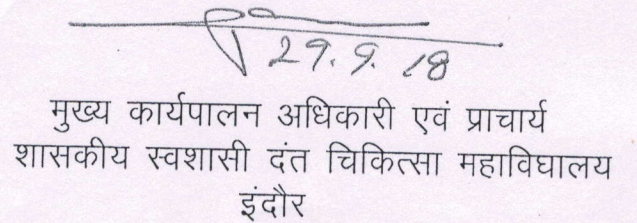 29.9.18
मुख्य कार्यपालन अधिकारी एवं प्राचार्य
शासकीय स्वशासी दंत चिकित्सा महाविघालय
इंदौर